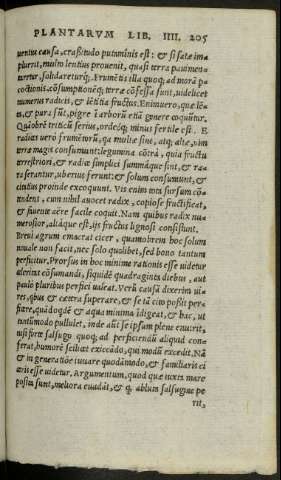 PLANTARVM LIB. IIII. 205
uentus causa, crassitudo putaminis est: & si satæ ima
pluerit, multo lentius prouenit, quasi terra pauimenta
tertur, solidareturq́;. Frumẽtis illa quoq; ad morã pa
coctionis. cõsumptionéq; terræ cõfessa sunt, uidelicet
numerus radicis, & lętitia fructus. Enimuero, quæ lẽ
ta, & pura sũt, pigre ĩ arborũ etiã genere coquũtur.
Quãobrẽ triticũ serius, ordeóq; minus fertile est. E
radices uerò frumẽtorũ, qa multæ sint, atq; altæ, nim
terræ magis consumunt: legumina cõtrà, quia fructu
terrestriori, & radice simplici summáque sint, & ra
ra serantur, uberius ferunt: & solum consumunt, &
citatius proinde excoquunt. Vis enim tota sursum cõ
tendens, cum nihil auocet radix, copiose fructificat,
& fauente aëre facile coquit. Nam quibus radix nu
merosior, altiáque est, ijs fructus lignosi consistunt.
Breui agrum emacrat cicer, quamobrem hoc solum
nouale non facit, nec solo quolibet, sed bono tantum
perficitur. Prorsus in hoc minime rationis esse uidetur
celeritas cõsumandi, siquidẽ quadraginta diebus, aut
paulo pluribus perfici ualeat. Verũ causã dixerim ui
res, quibus & cætera superare, & se tã cito possit per
ficere, quádoqdẽ & aqua minima ĩdigeat, & hac, ut
tantũmodo pullulet, inde autẽ se ipsum plene enutrit,
nisi forte salsugo quoq; ad perficiendũ aliquid con
ferat, humorẽ scilicet exiccãdo, qui modũ excedit. Nã
& in generatiõe iuuare quodãmodo, & familiaris ci
ceris esse uidetur. Argumentum, quod quæ iuxta mare
posita sunt, meliora euadãt, & q ablutam salsugine pe
rit,